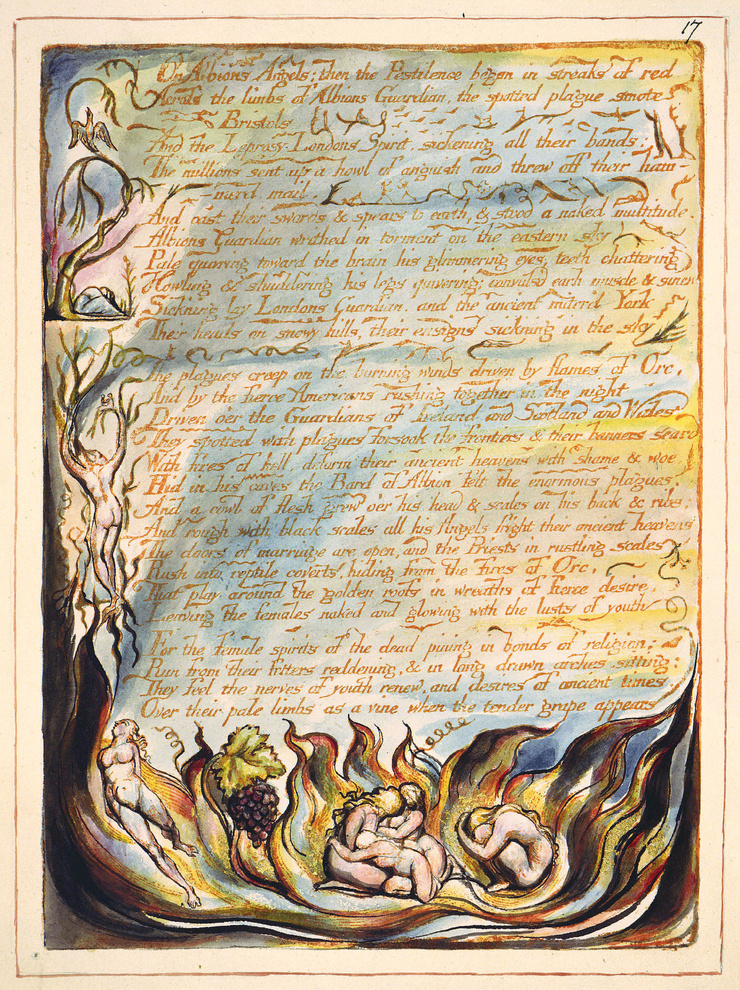 17
On Albions Angels; then the Pestilence began in streaks of red
Across the limbs of Albions Guardian, the spotted plague smote
Bristols
And the Leprosy Londons Spirit, sickening all their bands:
The millions sent up a howl of anguish and threw off their ham-
merd mail
And cast their swords & spears to earth, & stood a naked multitude.
Albions Guardian writhed in torment on the eastern sky
Pale quivring toward the brain his glimmering eyes, teeth chattering
Howling & shuddering his legs quivering; convulsd each muscle & sinew
Sickning lay Londons Guardian, and the ancient miterd York
Their heads on snowy hills, their ensigns sickning in the sky
The plagues creep on the burning winds driven by flames of Orc,
And by the fierce Americans rushing together in the night
Driven o'er the Guardians of Ireland and Scotland and Wales
They spotted with plagues forsook the frontiers & their banners seard
With fires of hell, deform their ancient heavens with shame & woe.
Hid in his caves the Bard of Albion felt the enormous plagues.
And a cowl of flesh grew o'er his head & scales on his back & ribs;
And rough with black scales all his Angels fright their ancient heavens
The doors of marriage are open, and the Priests in rustling scales
Rush into reptile coverts, hiding from the fires of Orc,
That play around the golden roofs in wreaths of fierce desire,
Leaving the females naked and glowing with the lusts of youth
For the female spirits of the dead pining in bonds of religion;
Run from their fetters reddening, & in long drawn arches sitting:
They feel the nerves of youth renew, and desires of ancient times,
Over their pale limbs as a vine when the tender grape appears